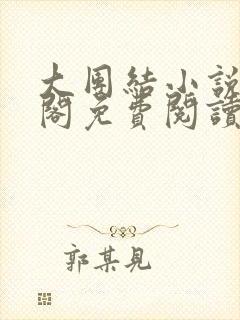 大團結小說
閣免費閱讀
郭某見